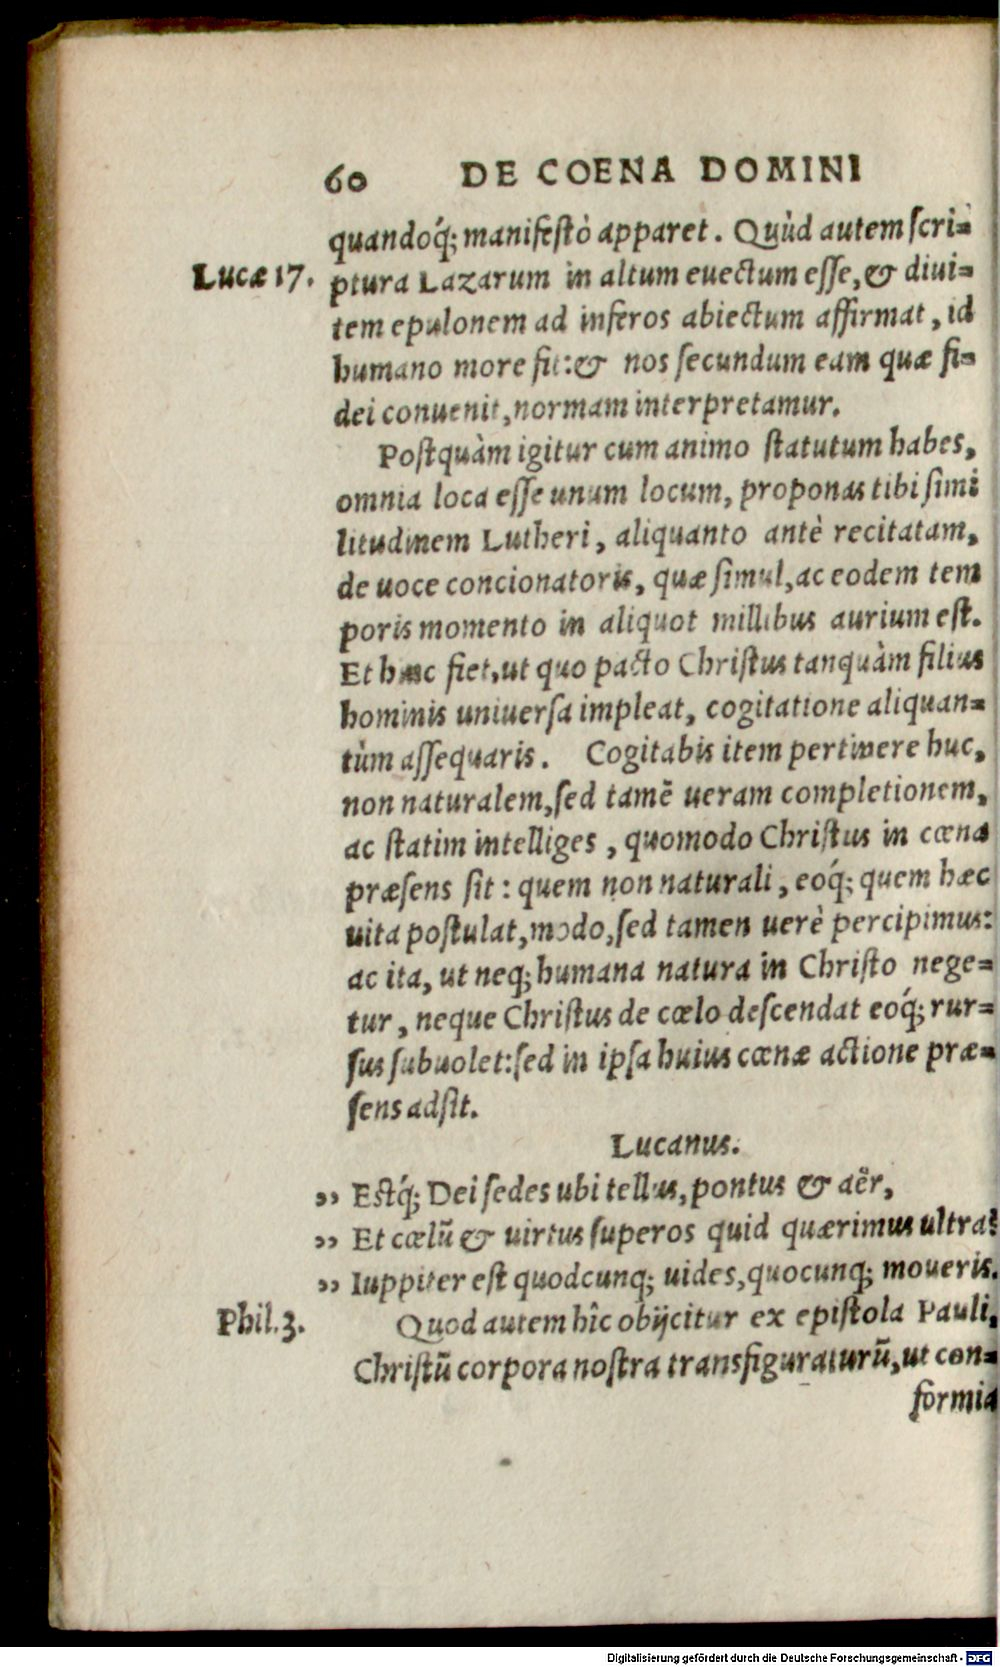 60 DE COENA DOMINI
quandoq́; manifestò apparet. Quùd autem scri-
Lucæ 17. ptura Lazarum in altum euectum esse, & diui-
tem epulonem ad inferos abiectum affirmat, id
humano more fit: & nos secundum eam quæ fi-
dei conuenit, normam interpretamur.
Postquàm igitur cum animo statutum habes,
omnia loca esse unum locum, proponas tibi simi
litudinem Lutheri, aliquanto antè recitatam,
de uoce concionatoris, quæ simul, ac eodem tem
poris momento in aliquot millibus aurium est.
Et hinc fiet, ut quo pacto Christus tanquàm filius
hominis uniuersa impleat, cogitatione aliquan-
tùm assequaris. Cogitabis item pertinere huc,
non naturalem, sed tamẽ ueram completionem,
ac statim intelliges, quomodo Christus in cœna
præsens sit: quem non naturali, eoq́; quem hæc
uita postulat, modo, sed tamen uerè percipimus:
ac ita, ut neq; humana natura in Christo nege-
tur, neque Christus de cœlo descendat eoq́; rur-
sus subuolet: sed in ipsa huius cœnæ actione præ-
sens adsit.
Lucanus.
,, Estq́; Dei sedes ubi tellus, pontus & aër,
,, Et cœlũ & uirtus superos quid quærimus ultra?
,, Iuppiter est quodcunq; uides, quocunq; moueris.
Phil. 3. Quod autem hîc obijcitur ex epistola Pauli,
Christũ corpora nostra transfiguraturũ, ut con-
formia
Digitalisierung gefördert durch die Deutsche Forschungsgemeinschaft - DFG